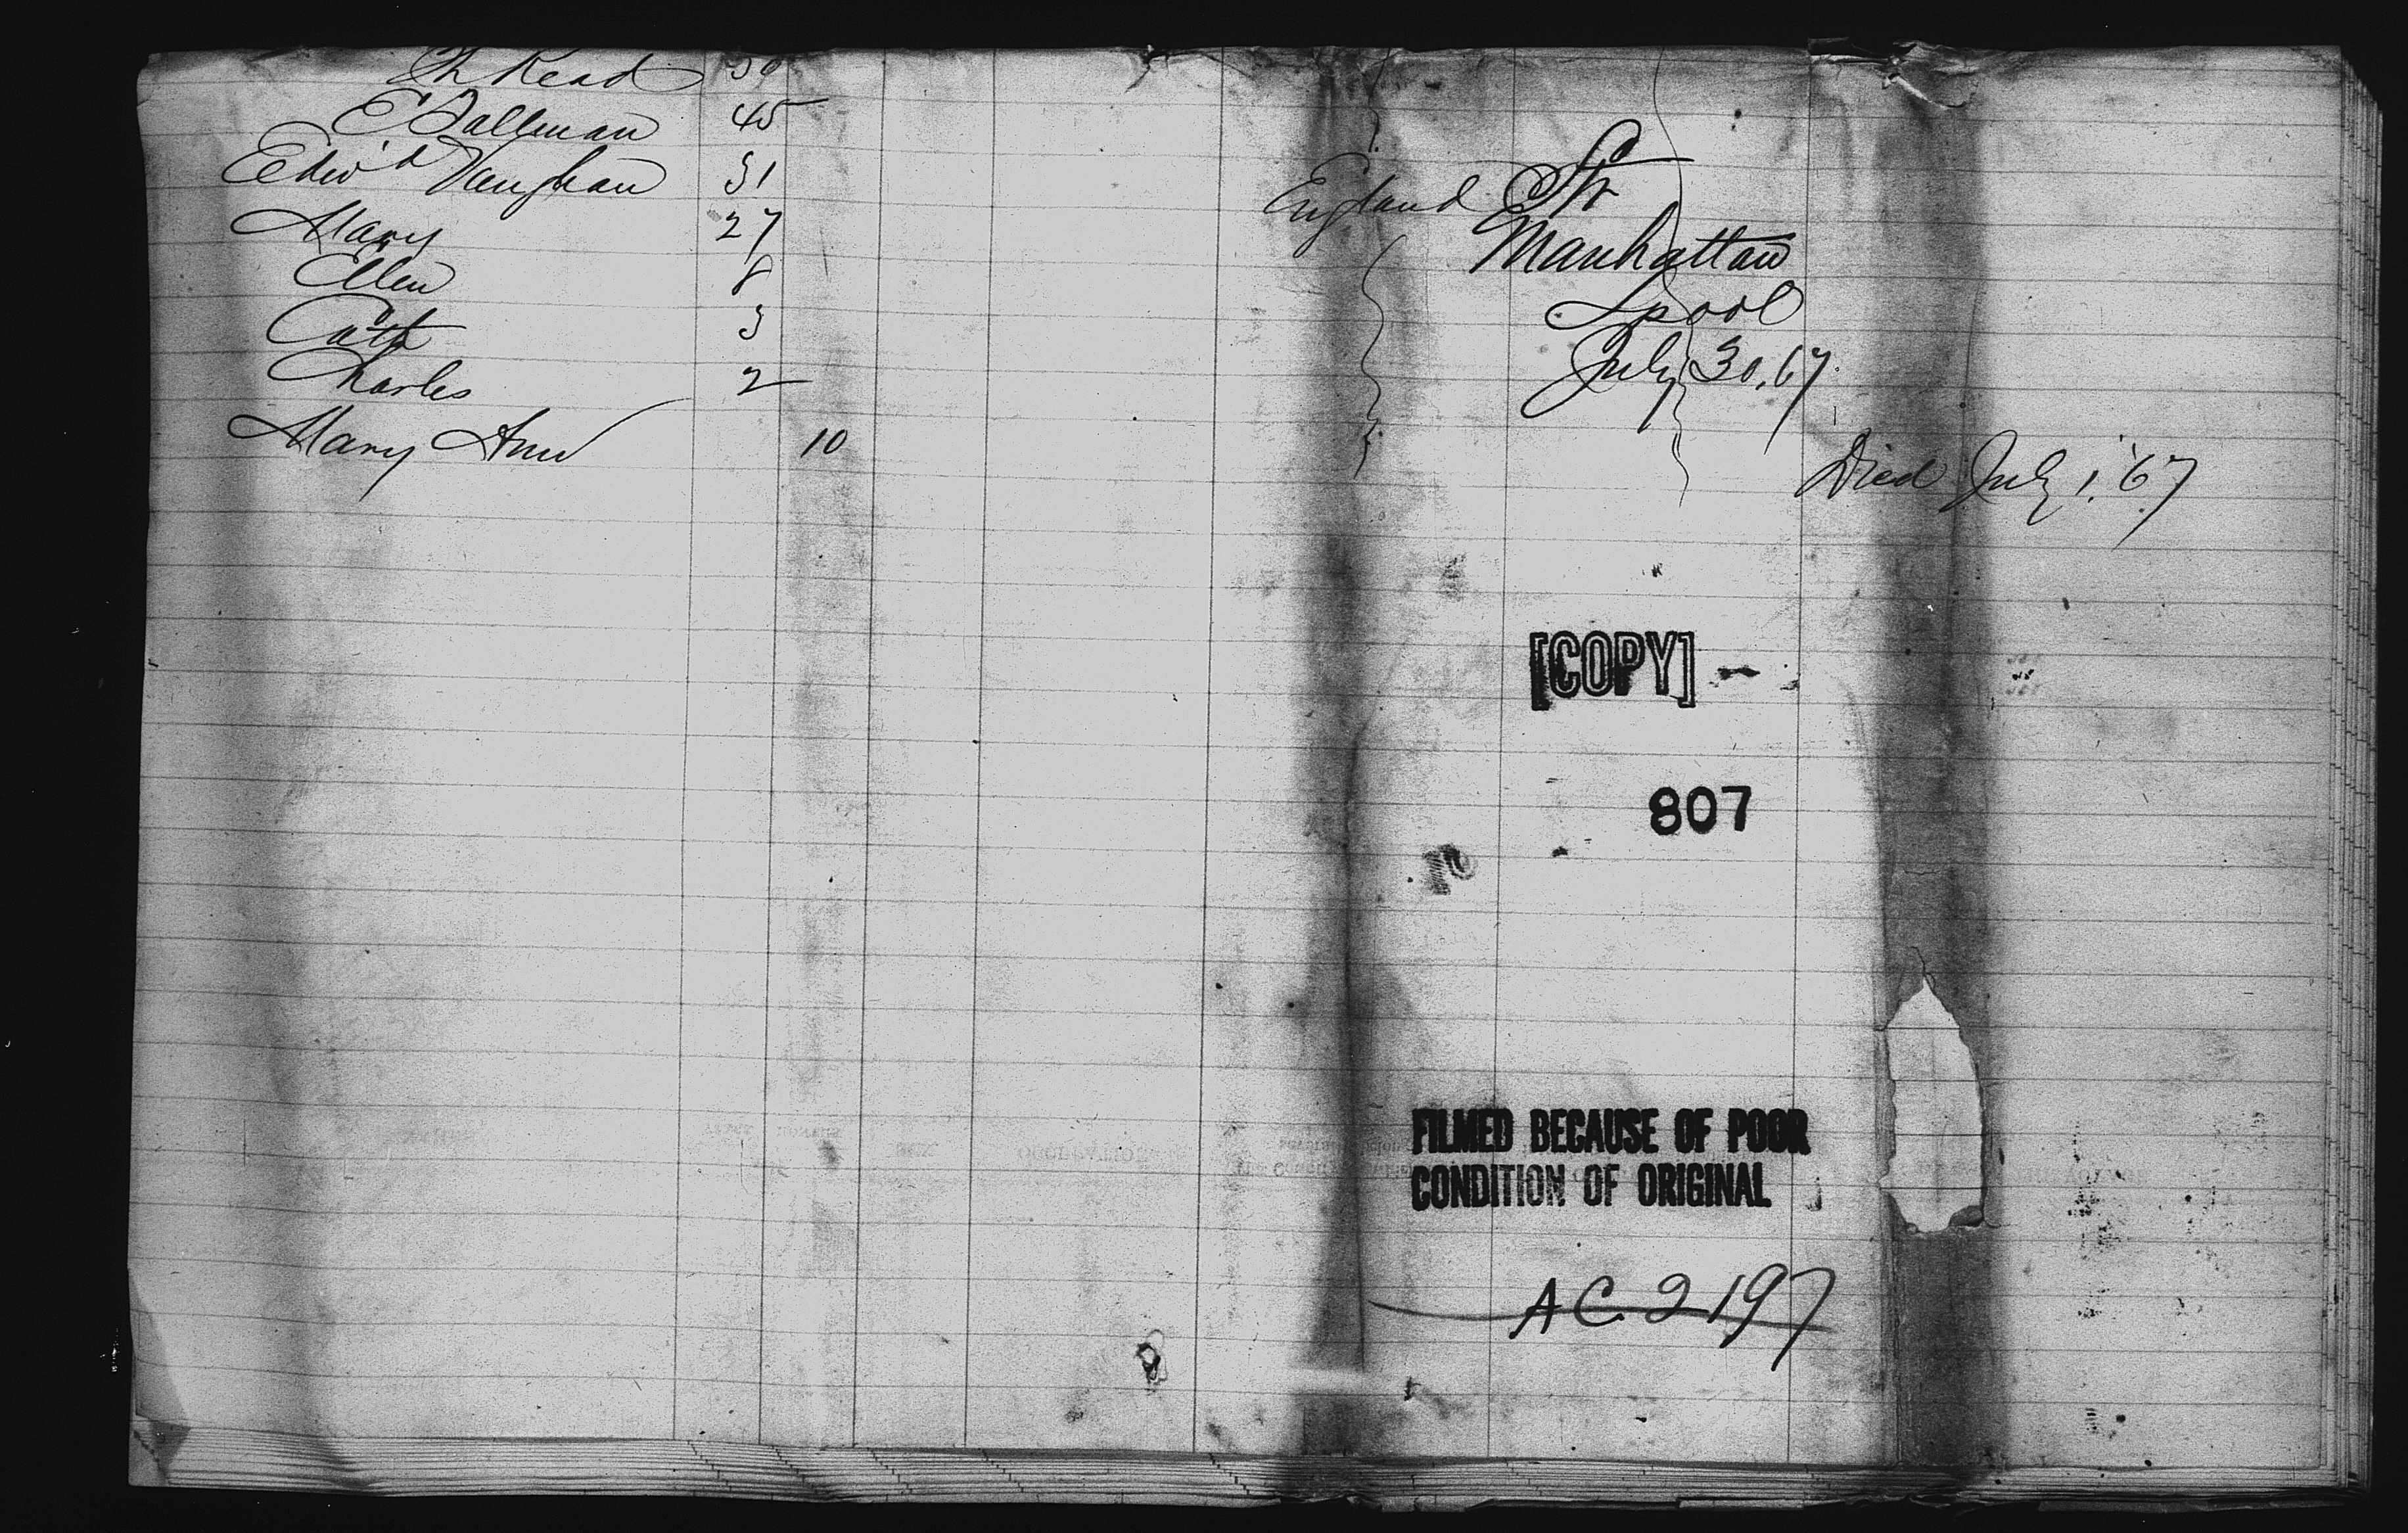 Th Read 30
E Tallman 45
Edwd Vaughan 31 England
Mary 27
Ellen 8
Cath 3
Charles 2
Mary Ann 10 Died July 1, '67
Str
Manhattan
Lpool
July 30, 67
[COPY]
807
FILMED BECAUSE OF POOR
CONDITION OF ORIGINAL
AC. 2197